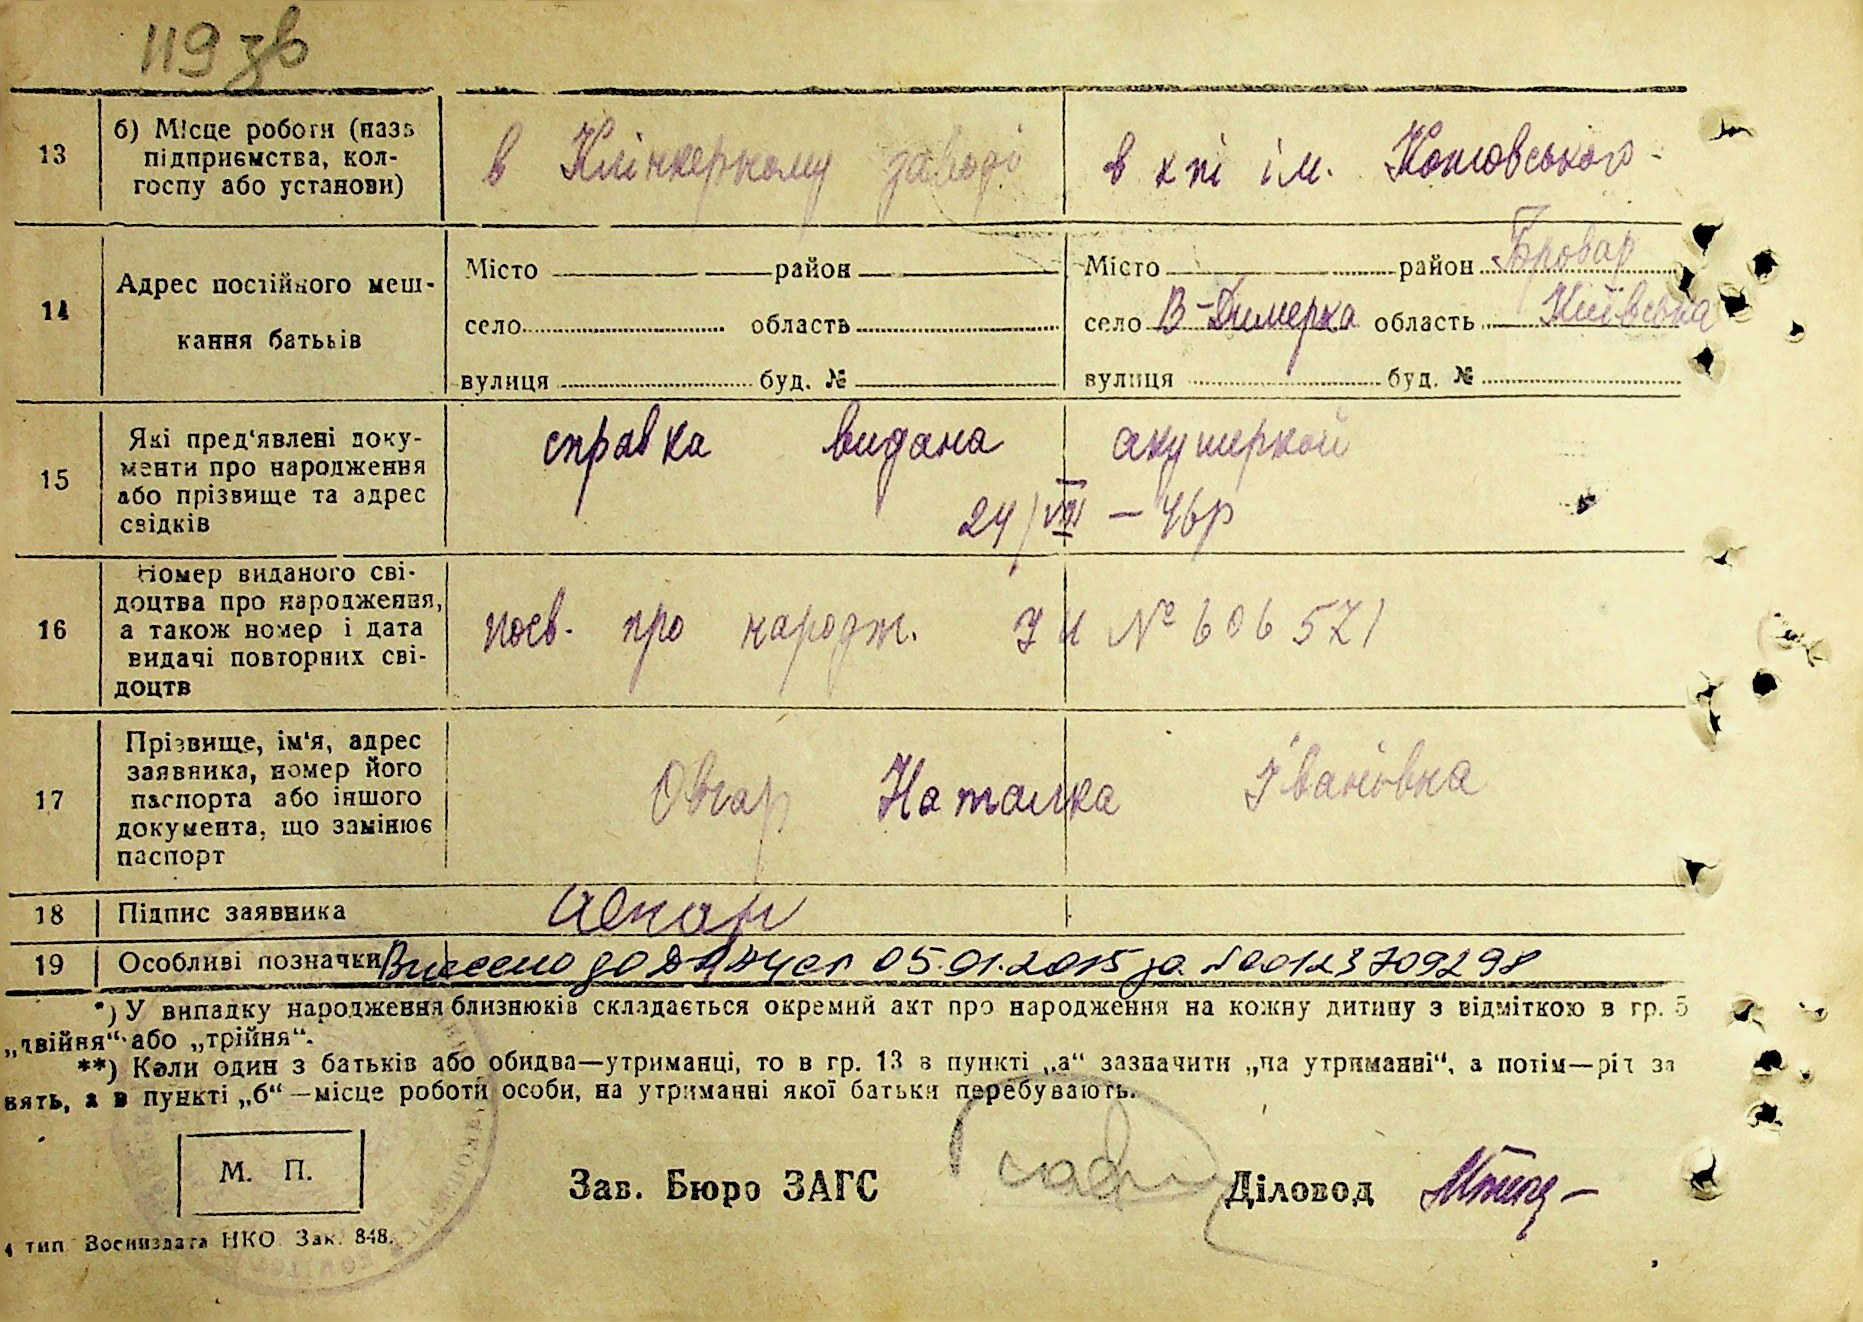 119 зв
13
б) Місце роботи (назв
підприємства, кол-
госпу або установи)
в Клінкерному заводі
в к пі ім. Котовського
14
Адрес постійного меш-
кання батьків
Місто район
село область
вулиця буд. №
Місто район Бровар
село В-Димерка область Київська
вулиця буд. №
15
Які пред'явлені доку-
менти про народження
або прізвище та адрес
свідків
справка видана акушеркой
24/VIII – 46р
16
Номер виданого сві-
доцтва про народження,
а також номер і дата
видачі повторних сві-
доцтв
посв. про народж. № 606571
17
Прізвище, ім'я, адрес
заявника, номер його
паспорта або іншого
документа, що замінює
паспорт
Овчар Наталка Івановна
18
Підпис заявника
19
Особливі позначки
Внесено до ДРАЦСГ 05.01.2015 за №00123709298
*) У випадку народження близнюків складається окремий акт про народження на кожну дитину з відміткою в гр. 5
„двійня“ або „трійня“.
**) Коли один з батьків або обидва—утриманці, то в гр. 13 в пункті „а“ зазначити „на утриманні“, а потім—рід за
нять, а в пункті „б“—місце роботи особи, на утриманні якої батьки перебувають.
М. П.
Зав. Бюро ЗАГС
Діловод
4 тип Воениздата НКО Зак. 848.